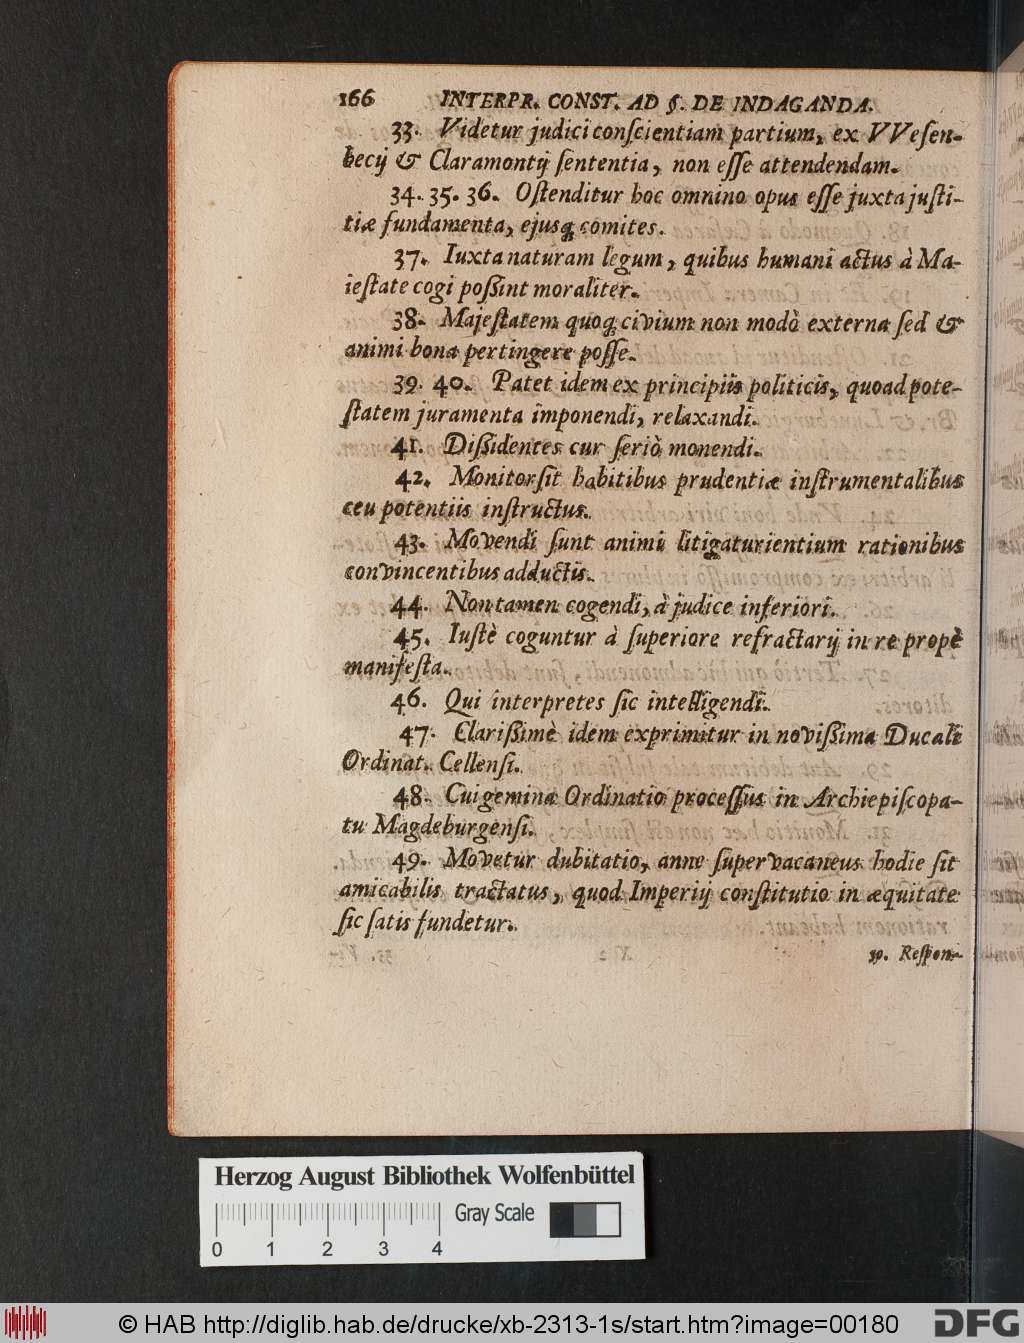 166 INTERPR. CONST. AD §. DE INDAGANDA.
33. Videtur judici conſcientiam partium, ex VVeſen-
becij & Claramontij ſententia, non eſſe attendendam.
34. 35. 36. Oſtenditur hoc omnino opus eſſe juxta juſti-
tiæ fundamenta, ejusq́; comites.
37. Iuxta naturam legum, quibus humani actus à Ma-
ieſtate cogi poſſint moraliter.
38. Majeſtatem quoq; civium non modò externa ſed &
animi bona pertingere poſſe.
39. 40. Patet idem ex principiis politicis, quoad pote-
ſtatem juramenta imponendi, relaxandi.
41. Diſſidentes cur ſeriò monendi.
42. Monitor ſit habitibus prudentiæ inſtrumentalibus
ceu potentiis inſtructus.
43. Movendi ſunt animi litigaturientium rationibus
convincentibus adductis.
44. Non tamen cogendi, à judice inferiori.
45. Iuſtè coguntur à ſuperiore refractarij in re propè
manifeſta.
46. Qui interpretes ſic intelligendi.
47. Clariſſimè idem exprimitur in noviſſima Ducali
Ordinat. Cellenſi.
48. Cui gemina Ordinatio proceſſus in Archiepiſcopa-
tu Magdeburgenſi.
49. Movetur dubitatio, anne ſupervacaneus hodie ſit
amicabilis tractatus, quod Imperij conſtitutio in æquitate
ſic ſatis fundetur.
50. Reſpon-
Herzog August Bibliothek Wolfenbüttel
Gray Scale
0 1 2 3 4
© HAB http://diglib.hab.de/drucke/xb-2313-1s/start.htm?image=00180
DFG